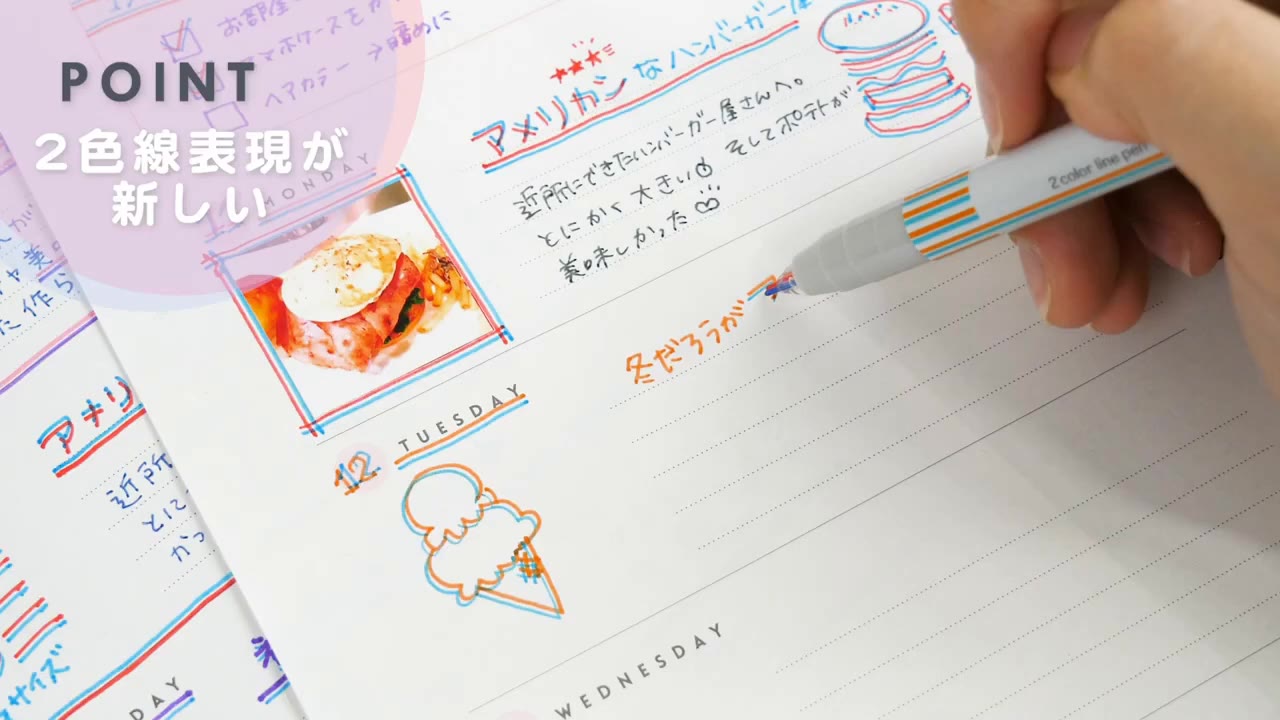 POINT
2色線表現が
新しい
お部屋
スマホケースを
ヘアカラー→暗めに
アメリカンなハンバーガー屋
近所にできたハンバーガー屋さんへ。
とにかく大きい そしてポテトが
美味しかった
2 color line pen
11 MONDAY
冬だろうが
12 TUESDAY
WEDNESDAY
アメリ
近所
とに
かっ
サイズ
DAY
た作ら